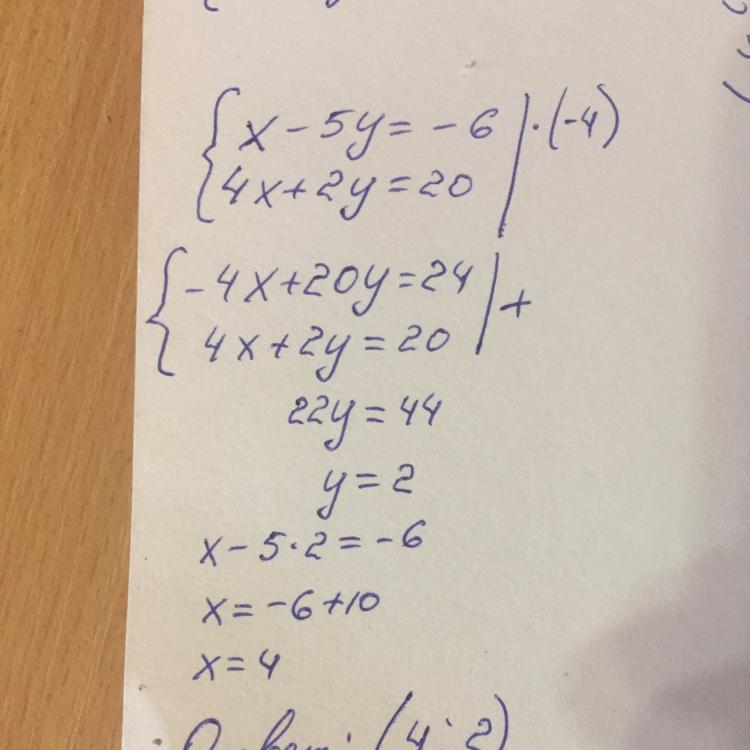 { x - 5y = -6 | ·(-4)
4x + 2y = 20
{ -4x + 20y = 24 | +
4x + 2y = 20
22y = 44
y = 2
x - 5·2 = -6
x = -6 + 10
x = 4
Ответ: (4; 2)